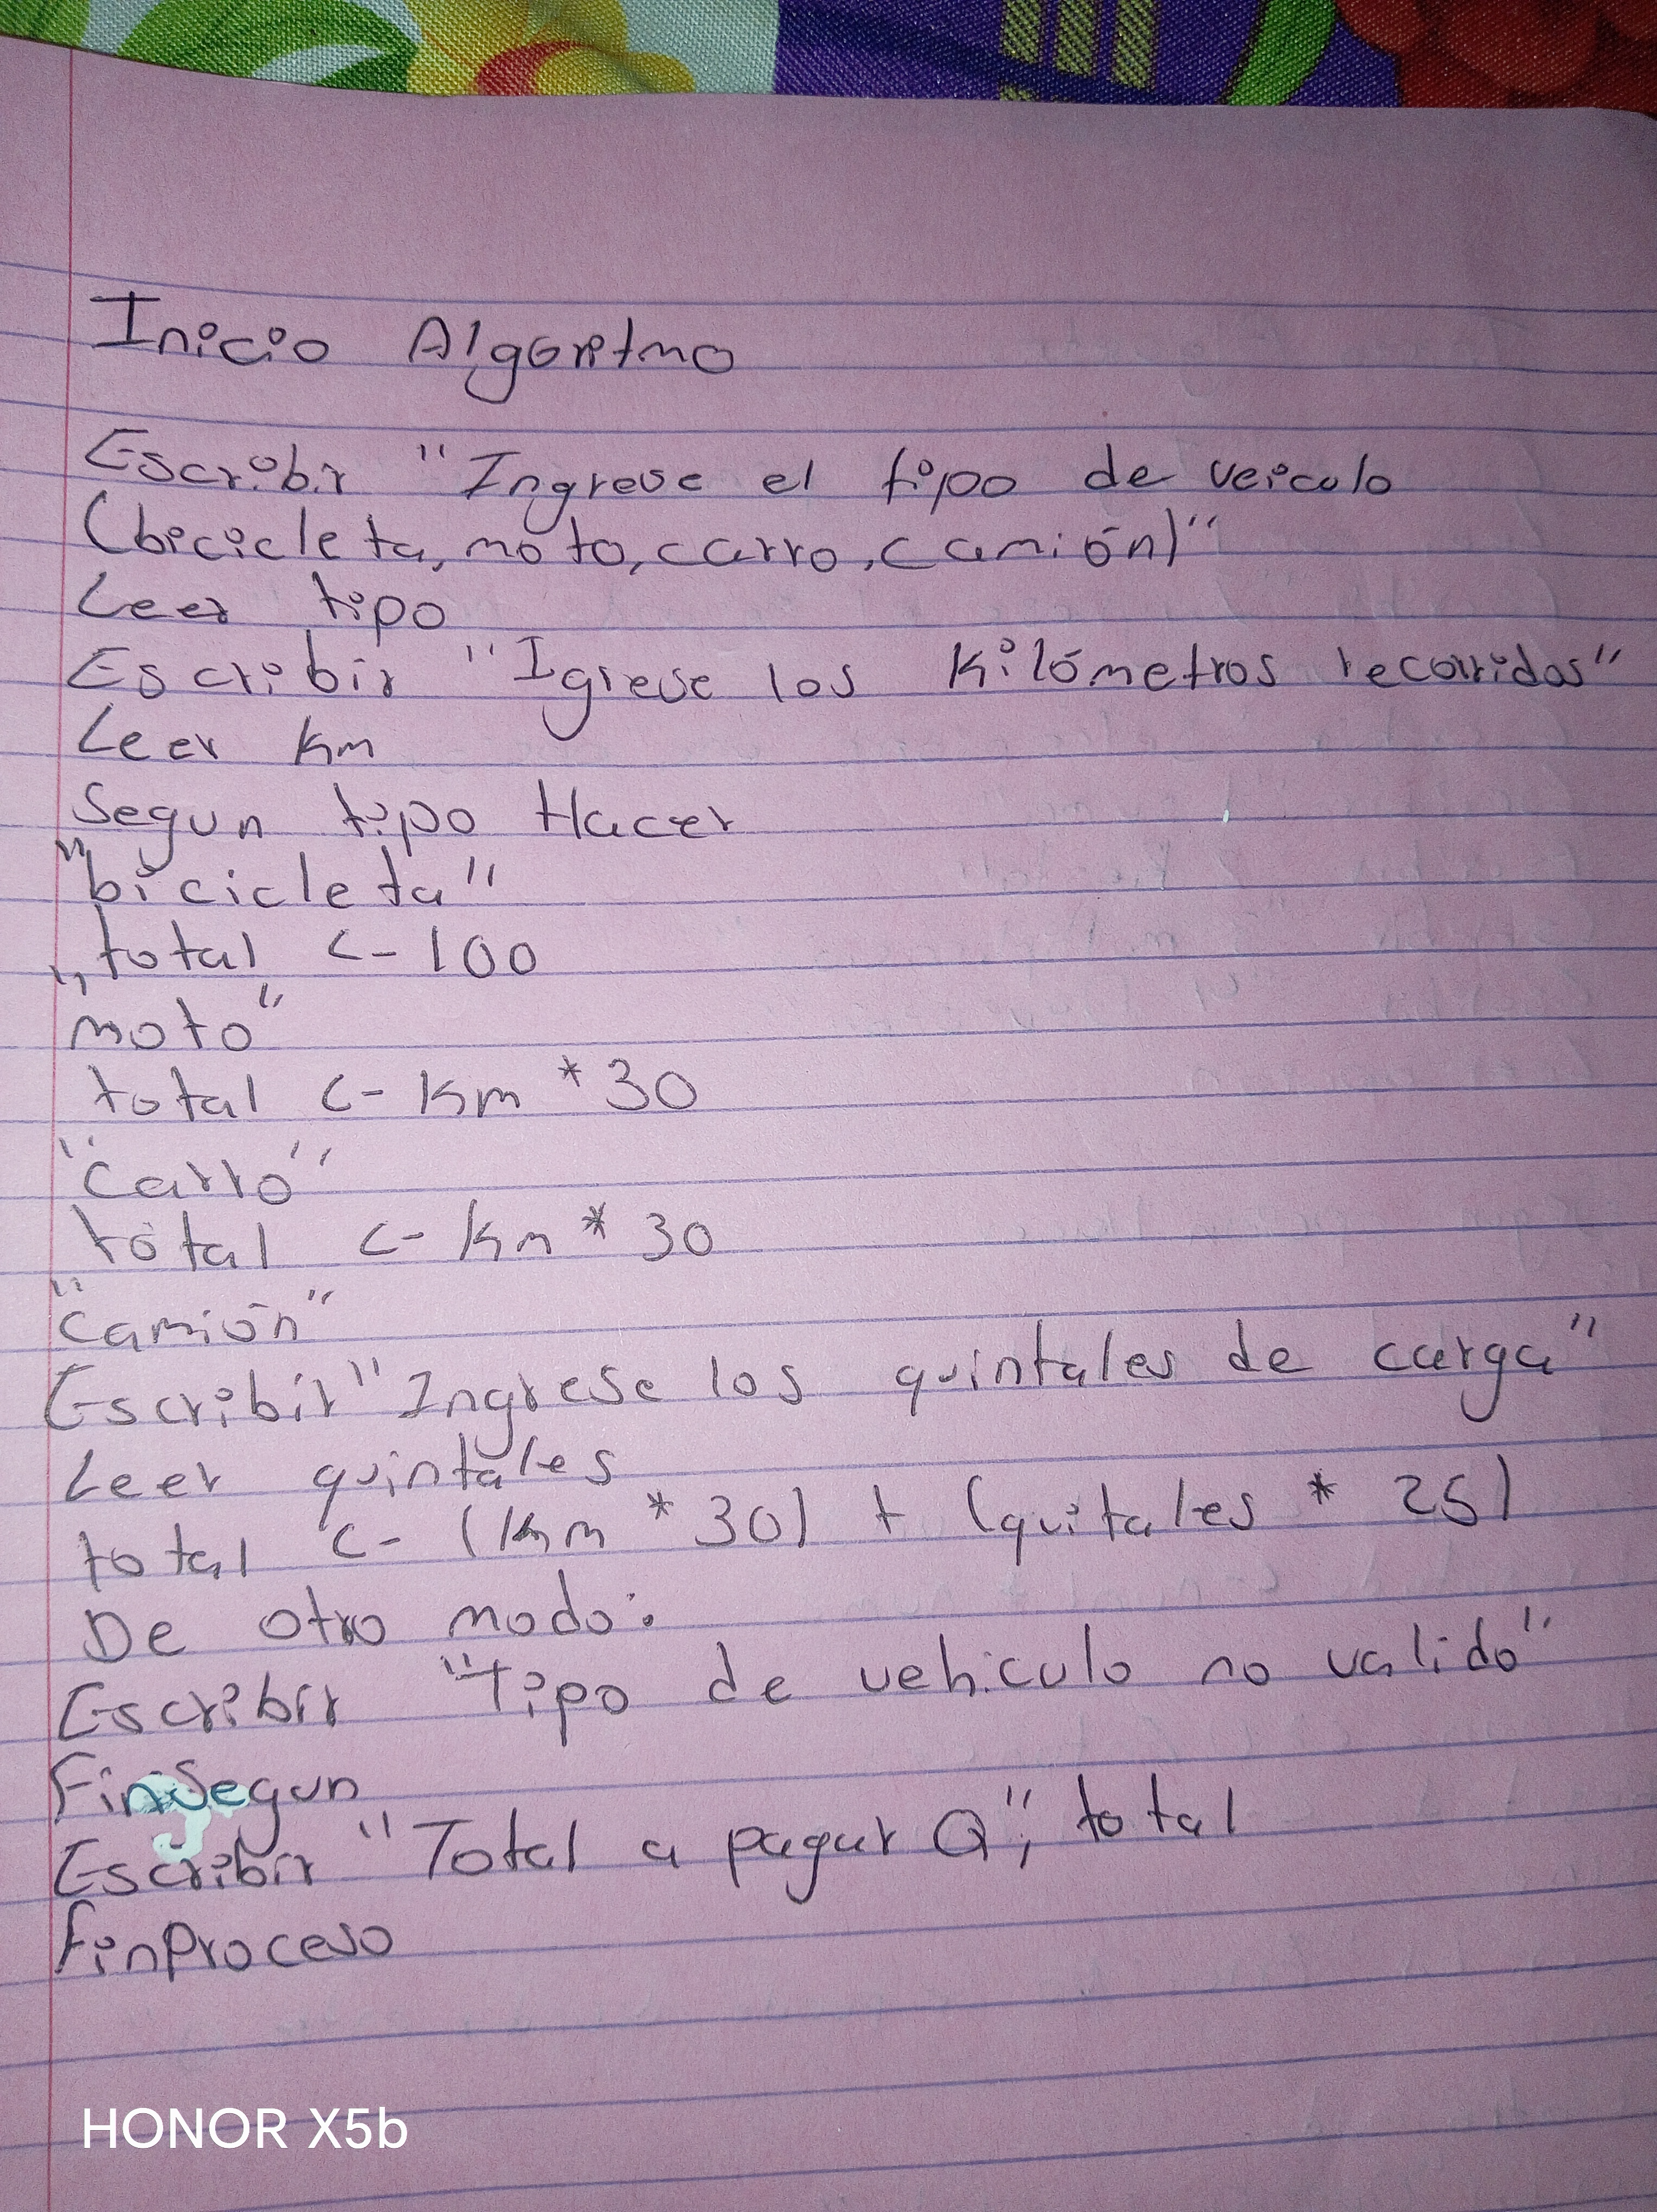 Inicio Algoritmo
Escribir "Ingrese el tipo de veiculo
(bicicleta, moto, carro, camión)"
Leer tipo
Escribir "Igrese los Kilómetros recorridos"
Leer Km
Segun tipo Hacer
"bicicleta"
total <- 100
"moto"
total <- Km * 30
"Carro"
total <- Km * 30
"Camión"
Escribir "Ingrese los quintales de carga"
Leer quintales
total <- (Km * 30) + (quitales * 25)
De otro modo:
Escribir "Tipo de vehiculo no valido"
FinSegun
Escribir "Total a pagar Q"; total
FinProceso
HONOR X5b